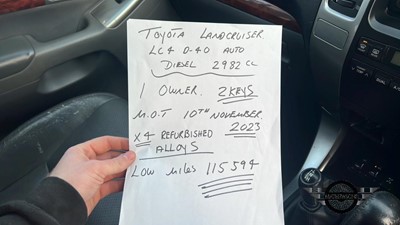 TOYOTA LANDCRUISER
LC4 D-4D AUTO
DIESEL 2982 CC
1 OWNER. 2 KEYS
M.O.T 10TH NOVEMBER
2023
X4 REFURBISHED
ALLOYS
LOW MILES 115594